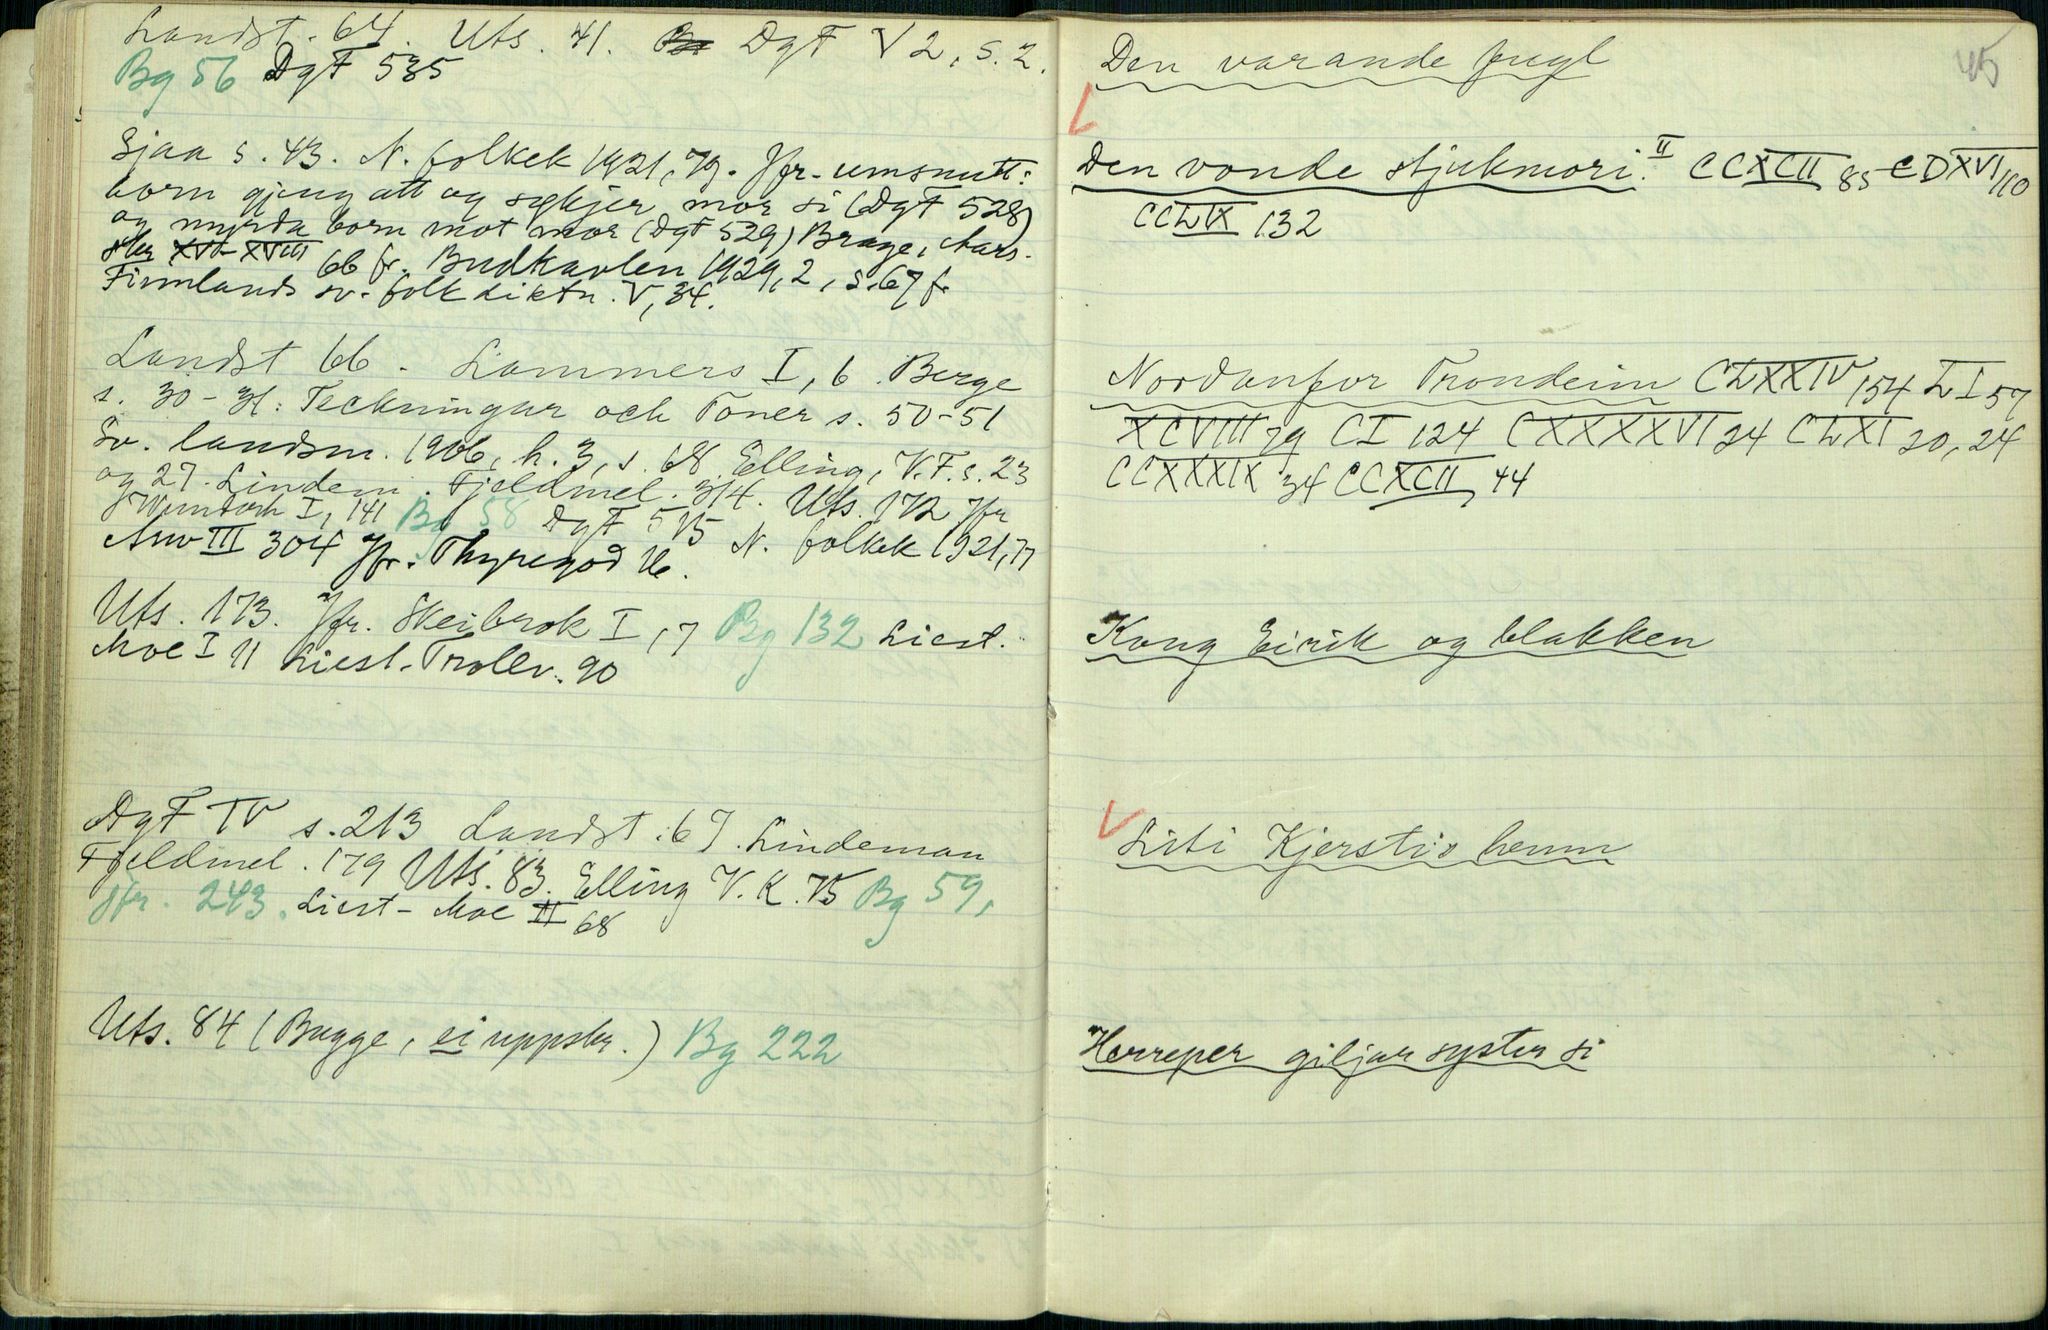 Landst. 64. Uts. 41. DgF V 2, s. 2.
Bg 56 DgF 535
Sjaa s. 43. N. folkek 1921, 79. Jfr. umsnutt:
born gjeng att og sykjer mor si (DgF 528)
og myrda born mot mor (DgF 529) Brage, Aars-
skr XVI-XVIII 66 fr. Budkavlen 1929, 2, s. 67 fr
Finnlands sv. folkdiktn. V, 34.
Landst 66. Lammers I, 6. Berge
s. 30-31: Teckningar och Toner s. 50-51
Sv. landsm. 1906, h. 3, s. 68 Elling, V. F. s. 23
og 27. Lindem. Fjeldmel. 314. Uts. 172 Jfr
I, 141 Bg 58 DgF 575 N. folkek 1921, 77
Arw III 304 Jfr. Thyregod
Uts. 173. Jfr. Skeibrok I, 7 Bg 132 Liest.
Moe I 11 Liest. Trollv. 90
DgF IV s. 213 Landst. 67. Lindeman
Fjeldmel. 179 Uts. 83. Elling V. K. 75 Bg 59,
jfr. 243. Liest-Moe II 68
Uts. 84 (Bugge, ei uppskr.) Bg 222
45
Den varande fugl
Den vonde stjukmori. II CCXCII 85 CDXVI 110
CCLIX 132
Nordanfor Trondeim CLXXIV 154 LI 57
XCVIII 79 CI 124 CXXXXVI 24 CLXI 20, 24
CCXXXIX 34 CCXCII 44
Kong Eirik og blakken
Liti Kjerstis hemn
Herreper giljar syster si